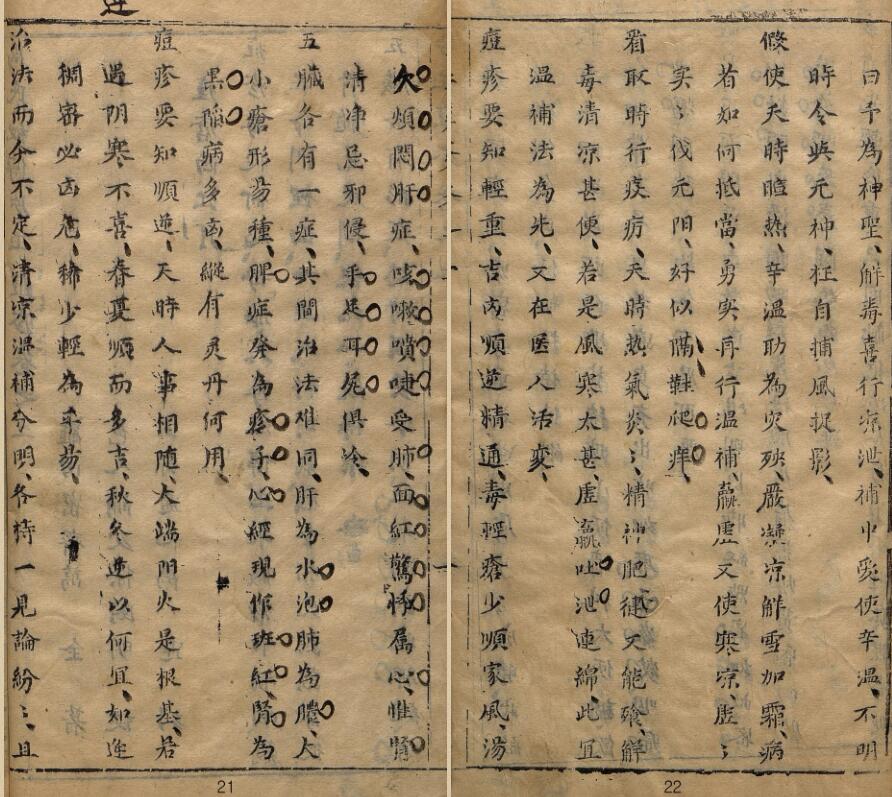 欠煩悶肝症、咳嗽噴嚏受肺、面紅驚悸属心、惟腎
清净忌邪侵、手足耳尻俱冷、
五臟各有一症、其間治法难同、肝為水泡肺為膿、大
小瘡形易種、脾症発為疹子、心經現作斑紅、腎為
黒陥病多凶、縱有灵丹何用、
痘疹要知順逆、天時人事相随、大端阳火是根基、若
遇阴寒不喜、春夏順而多吉、秋冬逆以何宜、如逢
稠密必凶危、稀少輕為平易、
治法而今不定、清凉温補分明、各持一見論紛〻、且
21
曰予為神聖、解毒喜行凉泄、補中爰使辛温、不明
時令與元神、枉自捕風捉影、
假使天時暄热、辛温助為灾殃、嚴凝凉解雪加霜、病
者如何抵當、勇实再行温補、羸虚又使寒凉、虚〻
实〻伐元阳、好似隔鞋爬痒、
看取時行疫疠、天時熱氣炎〻、精神肥健又能飱、解
毒清凉甚便、若是風寒太甚、虚羸吐泄連綿、此宜
温補法為先、又在医人活変、
痘疹要知輕重、吉凶順逆精通、毒輕瘡少順家風、湯
22